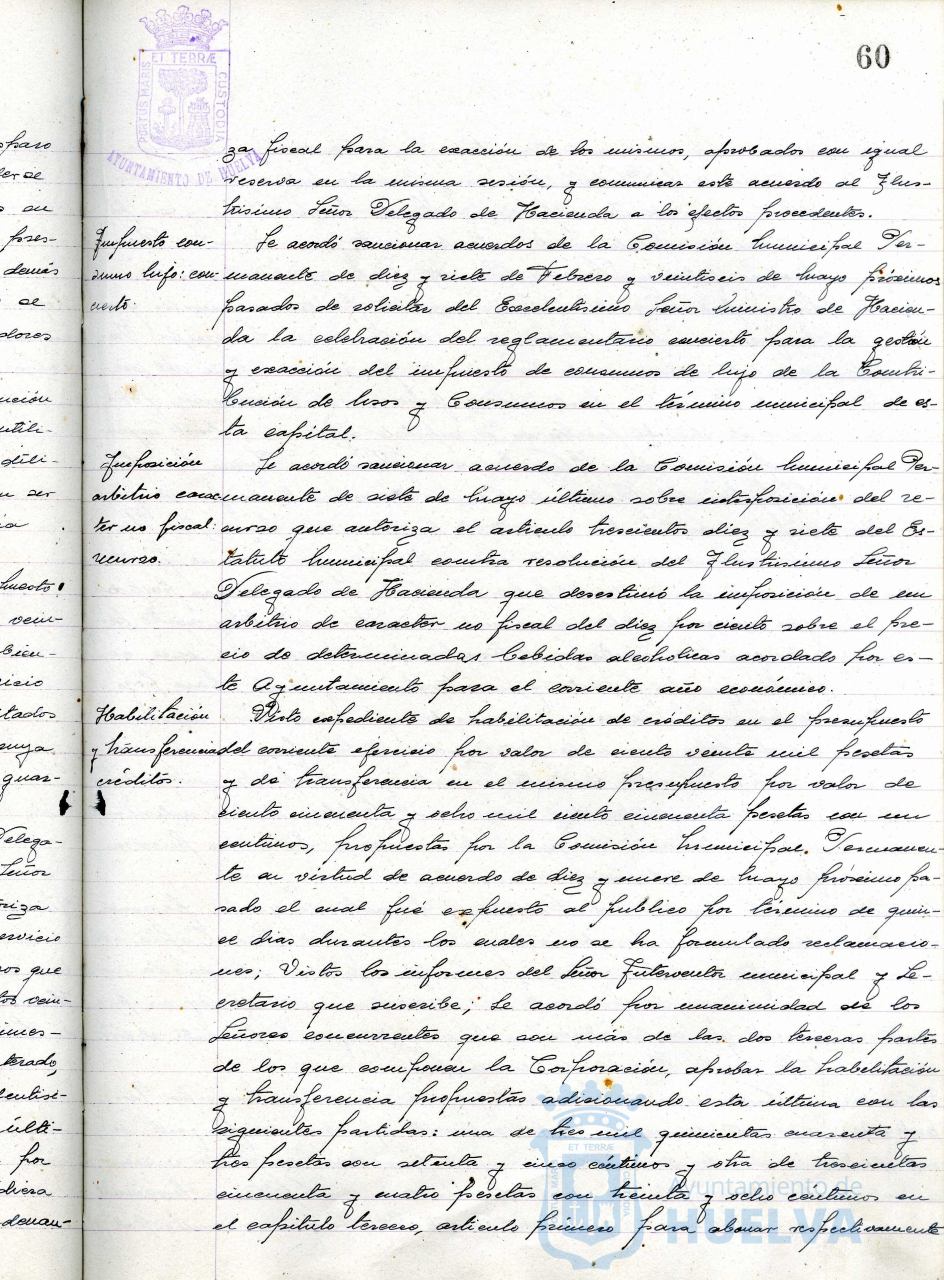 60
PORTUS MARIS ET TERRÆ CUSTODIA
AYUNTAMIENTO DE HUELVA
za fiscal para la exacción de los mismos, aprobados con igual
reserva en la misma sesión, y comunicar este acuerdo al Ilus-
trisimo Señor Delegado de Hacienda a los efectos procedentes.
Impuesto con-
sumo lujo: con-
cierto.
Se acordó sancionar acuerdos de la Comisión Municipal Per-
manente de diez y siete de Febrero y veintiseis de Mayo próximos
pasados de solicitar del Excelentisimo Señor Ministro de Hacien-
da la celebración del reglamentario concierto para la gestión
y exacción del impuesto de consumos de lujo de la Contri-
bución de Usos y Consumos en el término municipal de es-
ta capital.
Imposición
arbitrio carac
ter no fiscal:
recurso.
Se acordó sancionar acuerdo de la Comisión Municipal Per-
manente de siete de Mayo último sobre interposición del re-
curso que autoriza el articulo trescientos diez y siete del Es-
tatuto Municipal contra resolución del Ilustrisimo Señor
Delegado de Hacienda que desestimó la imposición de un
arbitrio de caracter no fiscal del diez por ciento sobre el pre-
cio de determinadas bebidas alcoholicas acordado por es-
te Ayuntamiento para el corriente año económico.
Habilitación
y transferencia
créditos.
Visto expediente de habilitación de créditos en el presupuesto
del corriente ejercicio por valor de ciento veinte mil pesetas
y de transferencia en el mismo presupuesto por valor de
ciento cincuenta y ocho mil ciento cincuenta pesetas con un
centimos, propuestas por la Comisión Municipal Permanen-
te en virtud de acuerdo de diez y nueve de Mayo próximo pa-
sado el cual fué expuesto al publico por término de quin-
ce dias durantes los cuales no se ha formulado reclamacio-
nes; Vistos los informes del Señor Interventor municipal y Se-
cretario que suscribe; Se acordó por unanimidad de los
Señores concurrentes que son más de las dos terceras partes
de los que componen la Corporación, aprobar la habilitación
y transferencia propuestas adicionando esta última con las
siguientes partidas: una de tres mil quinientas cuarenta y
tres pesetas con setenta y cinco céntimos y otra de trescientas
cincuenta y cuatro pesetas con treinta y ocho centimos en
el capitulo tercero, articulo primero para abonar respectivamente
Ayuntamiento de
HUELVA